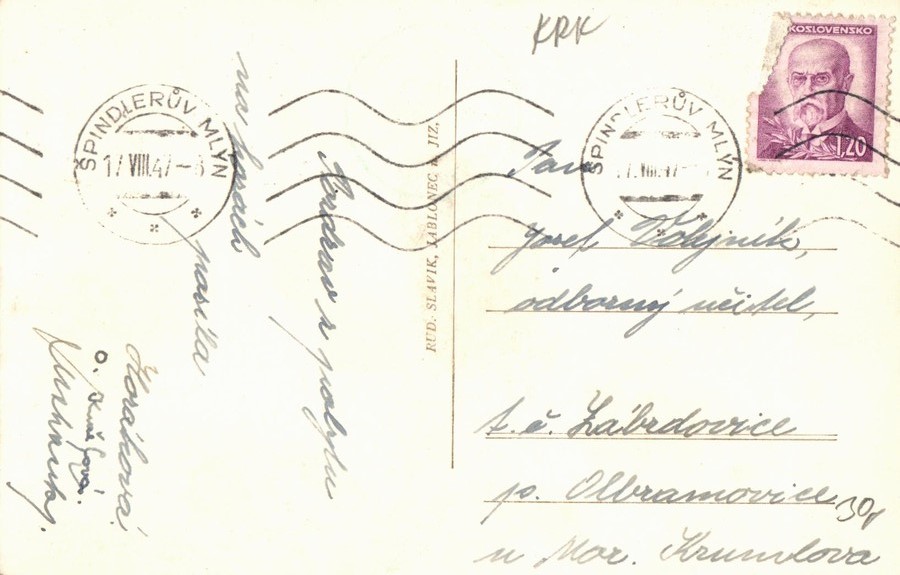 KRK
KOSLOVENSKO
1,20
ŠPINDLERŮV MLÝN
17 VIII.47-
ŠPINDLERŮV MLÝN
VIII.47-
Pozdrav z pobytu
na horách
posílá
Horáková
RUD. SLAVÍK, JABLONEC N. JIZ.
Pan
Josef Volejník,
odborný učitel,
t. č. Zábrdovice
p. Olbramovice
u Mor. Krumlova
30,